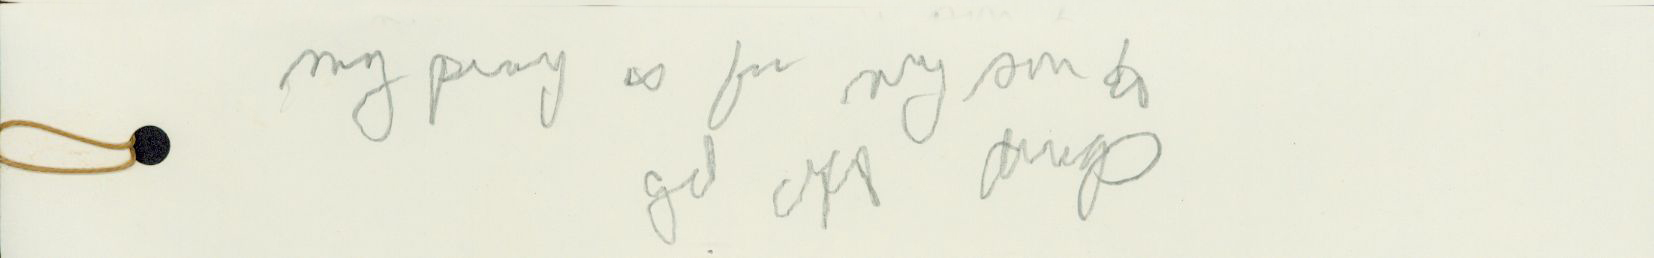 my pray is for my son to
get off drug